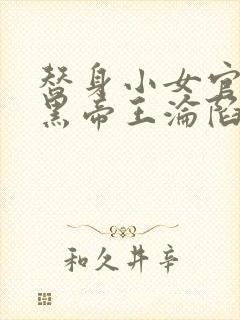 替身小女官
黑帝王淪陷
和久井辛